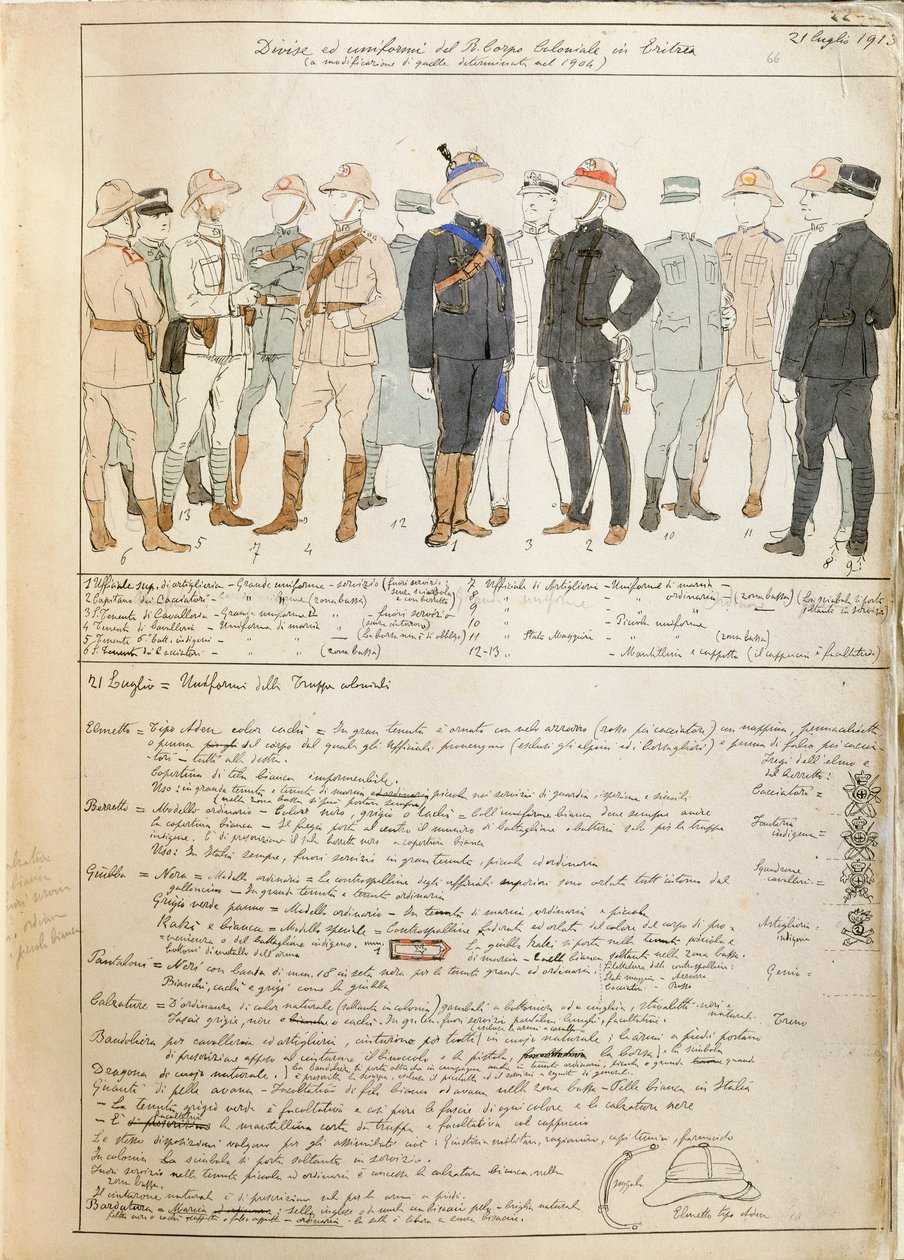 21 luglio 1913
66
Divise ed uniformi del R. Corpo Coloniale in Eritrea
(a modificazione di quelle determinate nel 1904)
6 13 5 7 4 12 1 3 2 10 11 8 9
1 Ufficiale sup. di artiglieria - Grande uniforme - servizio (fuori servizio: senza sciabola e con berretto)
2 Capitano dei Cacciatori - (zona bassa)
3 S. Tenente di Cavalleria - Grande uniforme - fuori servizio
4 Tenente di Cavalleria - Uniforme di marcia (senza cinturone)
5 Tenente 6° batt. indigeni - " " - (la borsa non è di obbligo)
6 S. Tenente di Cacciatori - " " (zona bassa)
7 Ufficiale di Artiglieria - Uniforme di marcia -
8 " - " ordinaria - (zona bassa) (La sciabola si porta soltanto in servizio)
9 " - "
10 " - Piccola uniforme
11 " Stato Maggiore - " " (zona bassa)
12-13 " - Mantellina e cappotto (il cappuccio è facoltativo)
21 Luglio = Uniformi della Truppa coloniali
Elmetto = Tipo Aden color cachi = In gran tenuta è ornato con velo azzurro (rosso pei cacciatori) con nappina, penna
o penna del corpo dal quale gli Ufficiali provengono (esclusi gli alpini ed i bersaglieri) e penna di falco pei caccia-
tori - tutt'alla destra.
Copertina di tela bianca impermeabile.
Uso: in grande tenuta e tenuta di marcia piccola nei servizi di guardia, ispezione e simili
(nella zona bassa si può portare sempre)
Fregi dell'elmo e
del berretto:
Cacciatori =
Fanteria
indigena =
Squadrone
cavalleri =
Artiglieria
indigena
Genio =
Treno
Berretto = Modello ordinario - Colore nero, grigio o cachi = Coll'uniforme bianca deve sempre avere
la copertina bianca - Il fregio porta al centro il numero di battaglione o batteria solo per le truppe
indigene. È di prescrizione il solo berretto nero e copertina bianca
Uso: In Italia sempre, fuori servizio in gran tenuta, piccola ed ordinaria
Giubba = Nera = Modello ordinario = Le controspalline degli ufficiali superiori sono orlate tutt'intorno dal
galloncino - In grande tenuta e tenuta ordinaria
Grigio verde panno = Modello ordinario - In tenuta di marcia, ordinaria e piccola
Kaki e bianca = Modello speciale = Controspalline foderate ed orlate del colore del corpo di pro-
venienza o del battaglione indigeno.
bottoni di metallo dell'arma
La giubba kaki si porta nella tenuta piccola e
di marcia - bianca soltanto nella zona bassa.
Filettatura delle controspalline:
Stato maggiore - Azzurro
Cacciatori - Rosso
Pantaloni = Neri con banda di mm. 18 in seta nera per le tenute grande ed ordinaria
Bianchi, cachi e grigi come la giubba
Calzature = D'ordinanza di color naturale (soltanto in colonia), gambali a bottoniera od a cinghia, stivaletti neri o naturali.
Fascie grigie, nere o cachi = In gr. ten. fuori servizio pantaloni lunghi, facoltativi.
Bandoliera per cavalleria ed artiglieria, cinturone per tutti in cuoio naturale; le armi a piedi portano
di prescrizione appeso al cinturone il binoccolo e la pistola, la borsa, e la sciabola
Dragona di cuoio naturale.
Guanti di pelle avana - Facoltativi di filo bianco od avana nella zona bassa - Pelle bianca in Italia
- La tenuta grigio verde è facoltativa e così pure le fascie di ogni colore e le calzature nere
- È facoltativa la mantellina corta da truppa e facoltativa col cappuccio
Le stesse disposizioni valgono per gli assimilati cioè: Giustizia militare, ragioniere, capi tecnici, farmacisti
In colonia la sciabola si porta soltanto in servizio.
Fuori servizio nelle tenute piccola ed ordinaria è concessa la calzatura bianca nella
zona bassa.
Il cinturone naturale è di prescrizione sol per le armi a piedi.
Bardatura = Marcia : sella inglese o da truppa con bisaccie pelo - briglia naturale
ordinaria - la sella è libera e senza bisaccie.
Elmetto tipo Aden